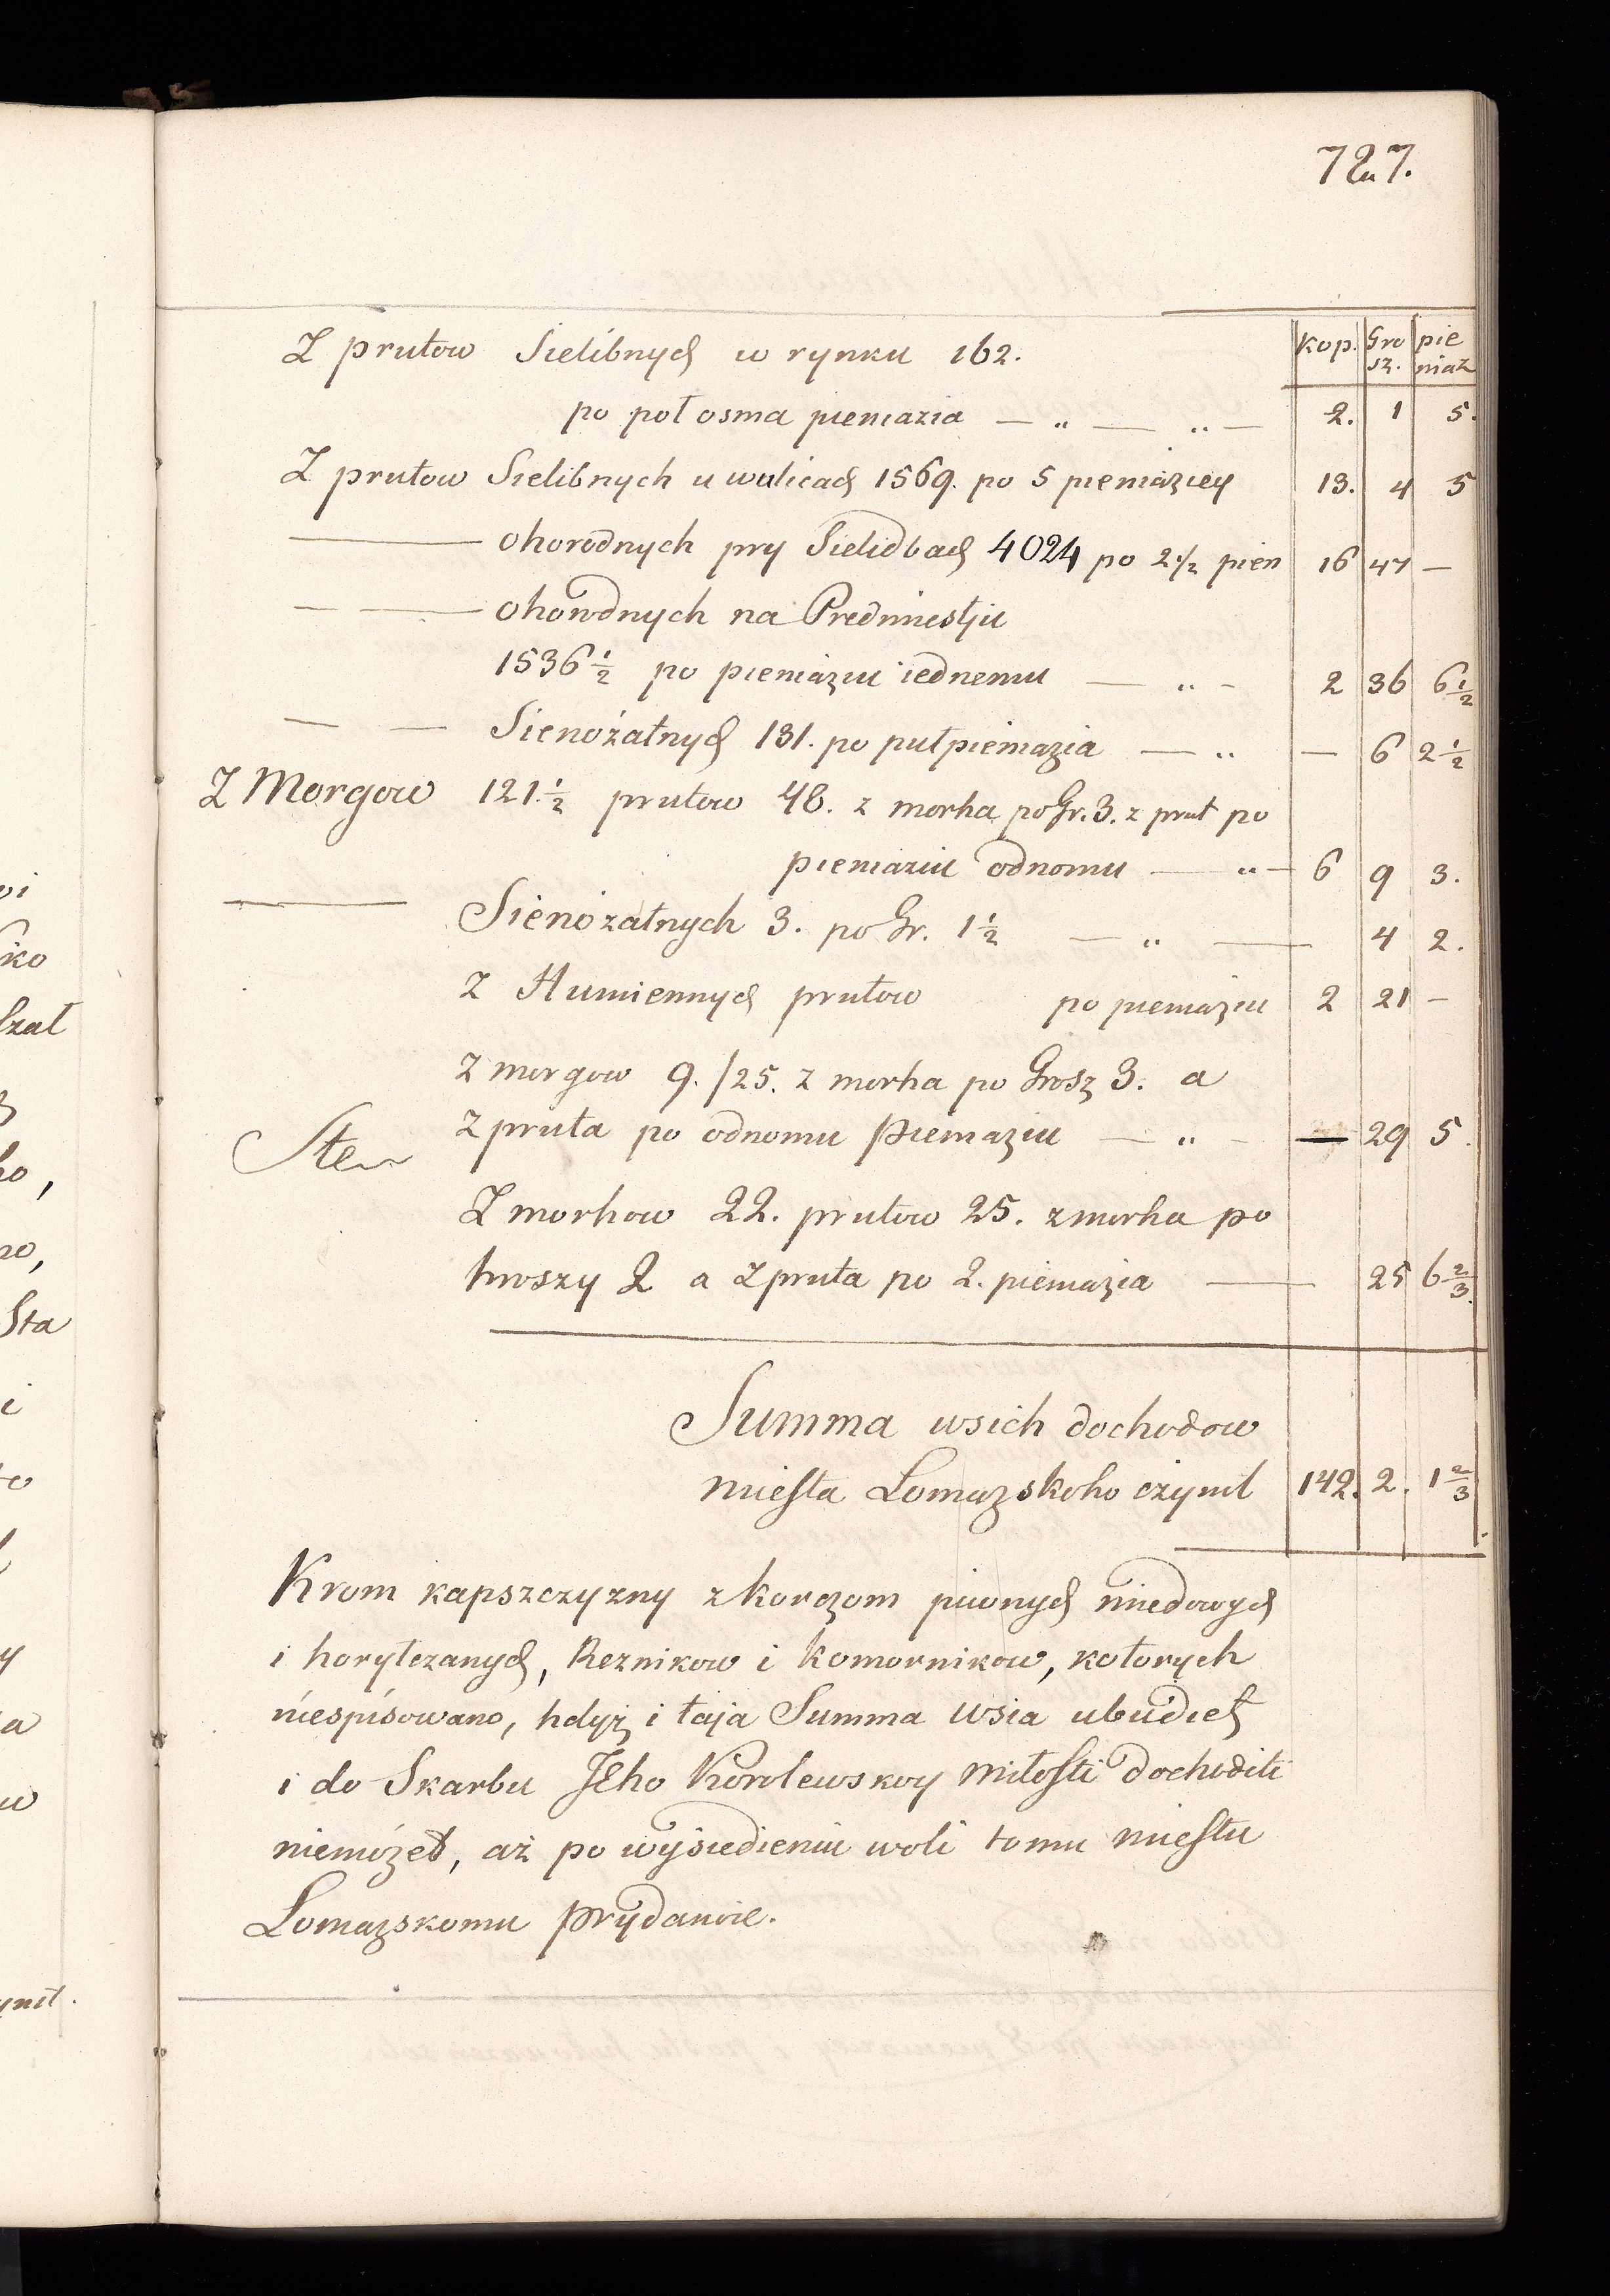 727.
kop. Gro sz. pie niaz
Z prutow Sielibnych w rynku 162.
po poł osma pieniazia — „ — „ — 2. 1 5.
Z prutow Sielibnych u wulicach 1569. po 5 pieniaziey 13. 4 5
— ohorodnych pry Sielidbach 4024 po 2 1/2 pien 16 47 —
— — ohorodnych na Predmiestju
1536 1/2 po pieniaziu iednemu — „ - 2 36 6 1/2
— — Sienożatnych 131. po pułpieniazia — „ — 6 2 1/2
Z Morgow 121. 1/2 prutow 48. z morha po Gr. 3. z prut po
pieniaziu odnomu — „ — 6 9 3.
— Sienożatnych 3. po Gr. 1 1/2 — „ — 4 2.
Z Humiennych prutow po pieniaziu 2 21 —
Z morgow 9./25. z morha po Grosz 3. a
z pruta po odnomu Pieniaziu — „ - — 29 5.
Z morhow 22. prutow 25. z morha po
hroszy 2 a z pruta po 2. pieniazia — 25 6 2/3.
Summa wsich dochodow
miesta Lomazskoho czynit 142. 2. 1 2/3
Krom kapszczyzny z korczom piwnych miedowych
i horyłczanych, Reznikow i Komornikow, kotorych
niespisowano, hdyż i taja Summa wsia ubudiet
i do Skarbu JEho Korolewskoy Miłosti dochoditi
niemożet, aż po wysiedieniu woli tomu miestu
Lomazskomu prydanoie.
oi
ko
szał
ho,
no,
Sta
i
to
y
a
w
ynit.